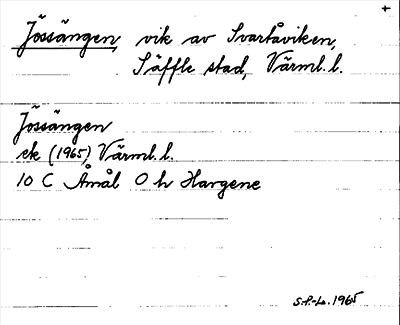 +
Jössängen, vik av Svartåviken,
Säffle stad, Värml. l.
Jössängen
ek (1965) Värml. l.
10 C Åmål 0 h Hargene
S.P.-L. 1965